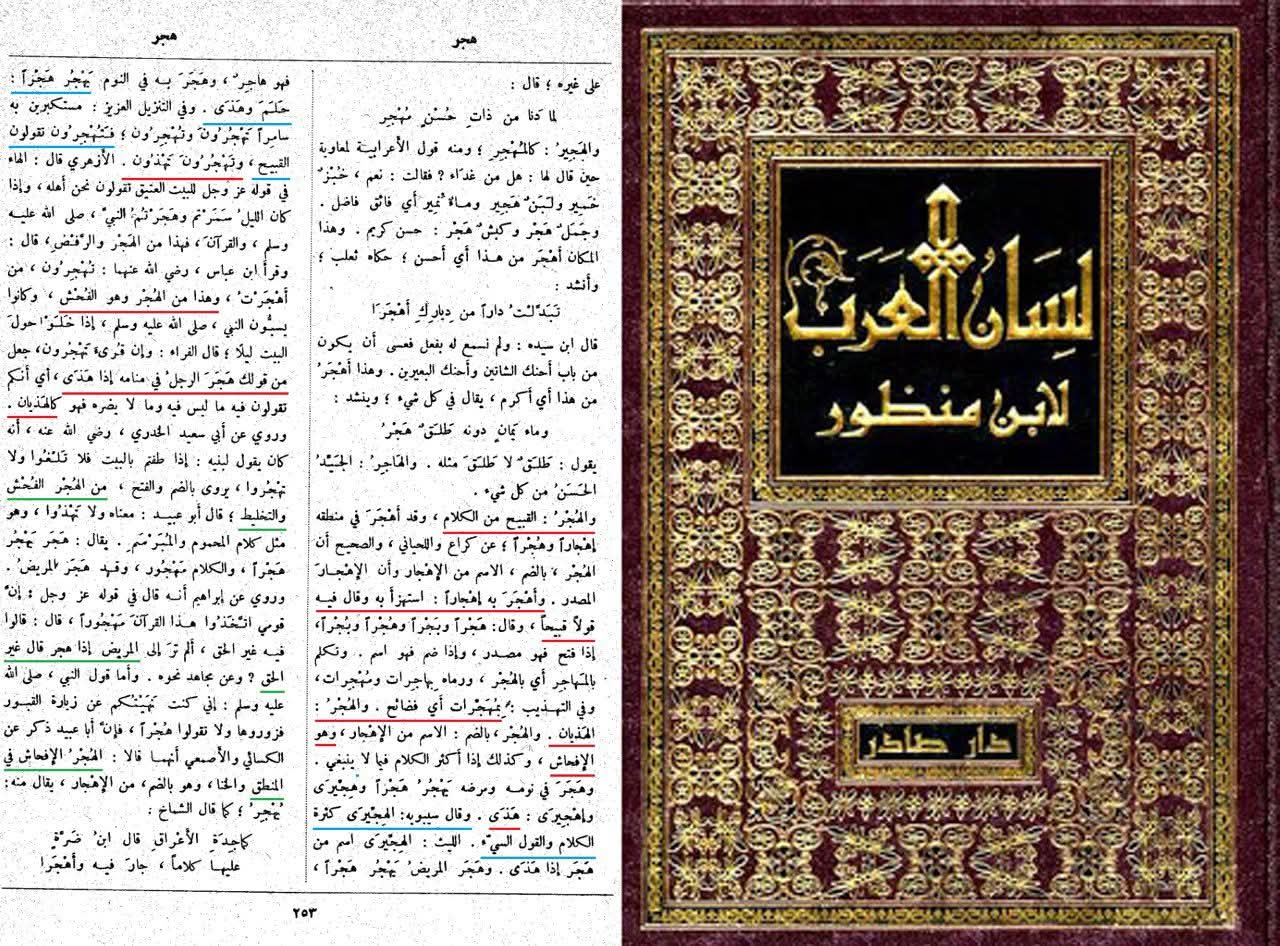 هجر
هجر
على غيره ؛ قال :
لما دنا من ذاتِ حُسْنٍ مُهْجِر
والهَجيرُ : كالمُهْجِرِ ؛ ومنه قول الأعرابية لمعاوية
حين قال لها : هل من غَداء ؟ فقالت : نعم ، خُبْزٌ
خَمِير ولَبَنٌ هَجِير وماءٌ نُمِير أي فائق فاضل .
وجَمَلٌ هَجْر وكبشٌ هَجْر : حسن كريم . وهذا
المكان أهْجَر من هذا أي أحسن ؛ حكاه ثعلب ؛
وأنشد :
تَبَدَّلْتُ داراً من دِيارِكِ أهْجَرَا
قال ابن سيده : ولم نسمع له بفعل فعسى أن يكون
من باب أحنك الشاتين وأحنك البعيرين . وهذا أهْجَرُ
من هذا أي أكرم ، يقال في كل شيء ؛ وينشد :
وماء يَمانٍ دونه طَلَقٌ هَجْرُ
يقول : طَلَقٌ لا طَلَقَ مثله . والهَاجِرُ : الجَيِّدُ
الحَسَنُ من كل شيء .
والهُجْرُ : القبيح من الكلام ، وقد أهْجَرَ في منطقه
إهْجاراً وهُجْراً ؛ عن كراع واللحياني ، والصحيح أن
الهُجْر ، بالضم ، الاسم من الإهْجار وأن الإهْجارَ
المصدر . وأهْجَرَ به إهْجاراً : استهزأ به وقال فيه
قولاً قبيحاً ، وقال: هَجْراً وبَجْراً وهُجْراً وبُجْراً،
إذا فتح فهو مصدر ، وإذا ضم فهو اسم . وتكلم
بالمَهاجر أي بالهُجْر ، ورماه بهاجِرات ومُهْجِرات،
وفي التهذيب : بمُهَجِّرات أي فضائح . والهُجْرُ :
الهَذيان . والهُجْر ، بالضم : الاسم من الإهْجار ، وهو
الإفحاش ، وكذلك إذا أكثر الكلام فيما لا ينبغي .
وهَجَرَ في نومه ومرضه يَهْجُرُ هَجْراً وهِجِّيرَى
وإهْجِيرَى : هَذَى . وقال سيبويه: الهِجِّيرَى كثرة
الكلام والقول السيِّء . الليث : الهِجِّيرَى اسم من
هَجَرَ إذا هَذَى . وهَجَرَ المريضُ يَهْجُر هَجْراً ،
فهو هاجِرٌ ، وهَجَرَ به في النوم يَهْجُر هَجْراً :
حَلَمَ وهَذَى . وفي التنزيل العزيز : مستكبرين به
سامراً تَهْجُرُونَ وتُهْجِرُون ؛ فتُهْجِرُون تقولون
القبيح ، وتَهْجُرُونَ تَهْذُون . الأزهري قال : الهاء
في قوله عز وجل للبيت العتيق تقولون نحن أهله ، وإذا
كان الليلُ سَمَرْتم وهَجَرْتمُ النبيَّ ، صلى الله عليه
وسلم ، والقرآنَ ، فهذا من الهَجْر والرَّفْضِ، قال :
وقرأ ابن عباس ، رضي الله عنهما : تُهْجِرُون ، من
أهْجَرْتُ ، وهذا من الهُجْر وهو الفُحْش ، وكانوا
يسبُّون النبي ، صلى الله عليه وسلم ، إذا خَلَوْا حولَ
البيت ليلًا ؛ قال الفراء : وإن قُرِئَ تَهْجُرون، جعل
من قولك هَجَرَ الرجلُ في منامه إذا هَذَى ، أي أنكم
تقولون فيه ما ليس فيه وما لا يضره فهو كالهَذيان .
وروي عن أبي سعيد الخدري ، رضي الله عنه ، أنه
كان يقول لبنيه : إذا طفتم بالبيت فلا تَلْغُوا ولا
تهْجُروا ، يروى بالضم والفتح ، من الهُجْر الفُحْش
والتخليط ؛ قال أبو عبيد : معناه ولا تَهْذُوا ، وهو
مثل كلام المحموم والمُبَرْسَمِ . يقال : هَجَر يَهْجُر
هَجْراً ، والكلام مَهْجُور ، وقد هَجَرَ المريضُ .
وروي عن إبراهيم أنه قال في قوله عز وجل : إنَّ
قومي اتَّخَذُوا هذا القرآنَ مَهْجُوراً ، قال : قالوا
فيه غير الحق ، ألم ترَ إلى المريض إذا هجر قال غير
الحق ؟ وعن مجاهد نحوه . وأما قول النبي ، صلى الله
عليه وسلم : إني كنت نَهَيْتُكم عن زيارة القبور
فزوروها ولا تقولوا هُجْراً ، فإنَّ أبا عبيد ذكر عن
الكسائي والأصمعي أنهما قالا : الهُجْرُ الإفحاش في
المنطق والخنا ، وهو بالضم، من الإهْجار ، يقال منه:
يُهْجِرُ ؛ كما قال الشماخ :
كماجِدَةِ الأعْراقِ قال ابنُ ضَرَّةٍ
عليها كلاماً ، جارَ فيه وأهْجَرا
٢٥٣
لِسَان العَرَب
لابن منظور
دار صادر